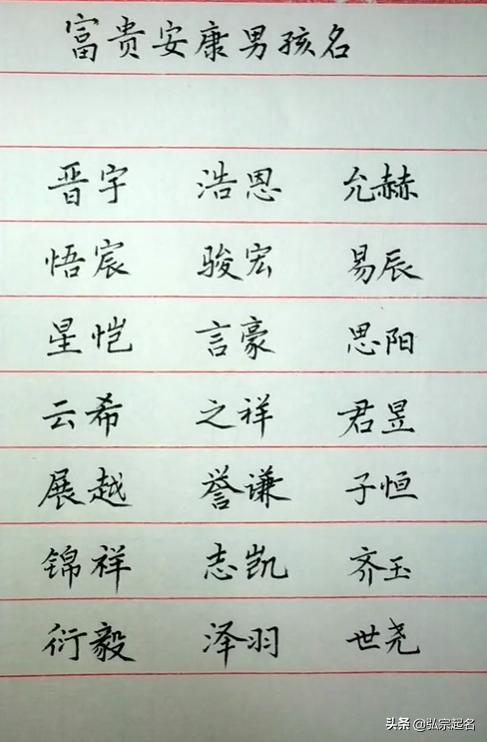 富贵安康男孩名
晋宇 浩恩 允赫
悟宸 骏宏 易辰
星恺 言豪 思阳
云希 之祥 君昱
展越 誉谦 子恒
锦祥 志凯 齐玉
衍毅 泽羽 世尧
头条 @弘宗起名